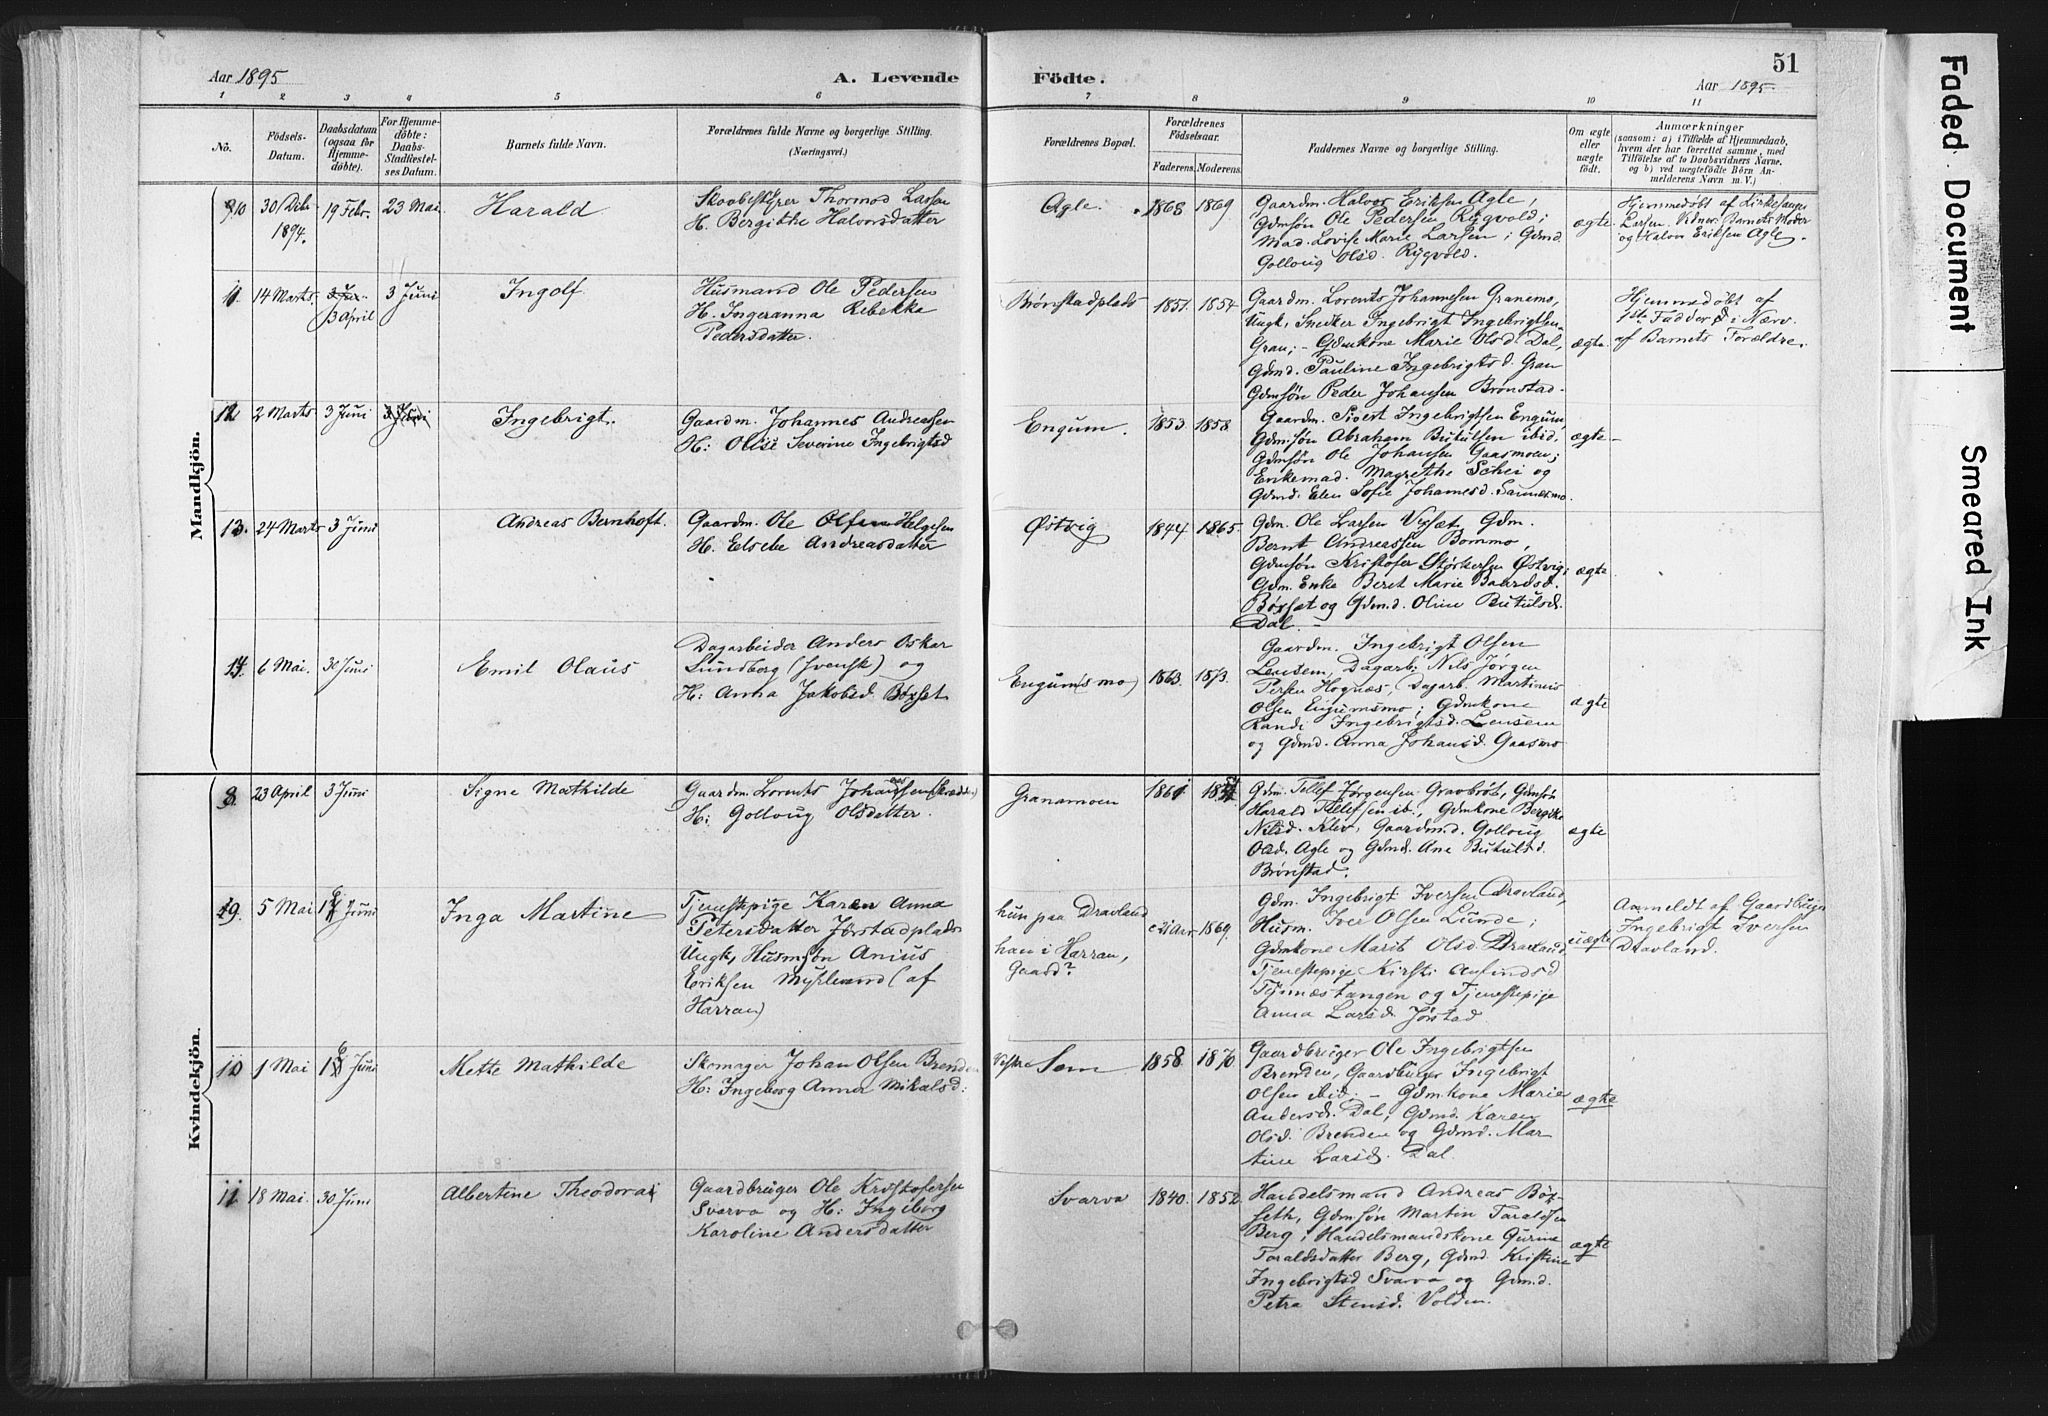 51
Aar 1895 A. Levende Födte. Aar 1895.
1 2 3 4 5 6 7 8 9 10 11
No. Födsels-Datum. Daabsdatum (ogsaa for Hjemme-döbte). For Hjemme-döbte: Daabs-Stadfæstel-ses Datum. Barnets fulde Navn. Forældrenes fulde Navne og borgerlige Stilling. (Næringsvei.) Forældrenes Bopæl. Forældrenes Födselsaar. Faderens. Moderens. Faddernes Navne og borgerlige Stilling. Om ægte eller uægte födt. Anmærkninger (saasom: a) i Tilfælde af Hjemmedaab, hvem der har forrettet samme, med Tilföielse af to Daabsvidners Navne, og b) ved uægtefödte Börn An-melderens Navn m. V.)
Mandkjön.
10 30 Dcbr 1894. 19 Febr. 23 Mai. Harald
Skovbestyrer Thormod Lassen
H. Bergithe Halvorsdatter
Agle. 1868 1869
Gaardm. Halvor Eriksen Agle,
Gdmsøn Ole Pedersen Rygvold;
Mad. Lovise Marie Larsen; Gdmd.
Gollaug Olsd. Rygvold.
ægte
Hjemmedøbt af Kirkesanger
Larsen. Vidner: Barnets Moder
og Halvor Eriksen Agle.
11. 14 Marts. 3 Jun. 3 April 3 Juni Ingolf
Husmand Ole Pedersen
H. Ingeranna Rebekka
Pedersdatter.
Brønstadplads 1851. 1854.
Gaardm. Lorents Johannesen Granemo,
Ungk, Snedker Ingebrigt Ingebrigtsen
Gran; - Gdmkone Marie Olsd. Dal,
Gdmd. Pauline Ingebrigtsd. Gran
Gdmsøn Peder Johansen Brønstad.
ægte.
Hjemmedøbt af
1ste Fadder i Nærv.
af Barnets Forældre.
12. 2 Marts 3 Juni 3 Juni Ingebrigt.
Gaardm. Johannes Andreassen
H: Olise Severine Ingebrigtsd
Engum. 1853. 1858.
Gaardm. Sivert Ingebrigtsen Engum,
Gdmsøn Abraham Butulsen ibid,
Gdmsøn Ole Johansen Gaasmoen;
Enkemad. Magrethe Schei og
Gdmd. Elen Sofie Johannesd. Sannesmo.
ægte
13. 24 Marts 3 Juni Andreas Bernhoft.
Gaardm. Ole Olsen Helgesen
H. Elsebe Andreasdatter
Østvig 1844 1865.
Gdm. Ole Larsen Vexsæt, Gdm.
Bernt Andreassen Bommo,
Gdmsøn Kristofer Størkersen Østvig;
Gdm. Enke Beret Marie Baardsd.
Bøxsæt og Gdmd. Oline Butulsd.
Dal. -
ægte.
14. 6 Mai. 30 Juni Emil Olaus
Dagarbeider Anders Oskar
Lundberg (svensk) og
H: Anna Jakobsd. Bøxset
Engum(smo) 1863. 1873.
Gaardm. Ingebrigt Olsen
Leusem, Dagarb. Nils Jørgen
Persen Hognæs, Dagarb. Martinus
Olsen Engumsmo; Gdmkone
Randi Ingebrigtsd. Leusem
og Gdmd. Anna Johansd. Gaasmo
ægte
Kvindekjön.
8. 23 April 3 Juni Signe Mathilde
Gaardm. Lorents Johannessen
H: Gollaug Olsdatter.
Granamoen 1861
Gdm. Tellef Jørgensen Gravbrøt, Gdmsøn
Harald Tellefsen ib., Gdmkone Bergitte
Nilsd. Klev, Gaardmd. Gollaug
Olsd. Agle og Gdmd. Ane Butulsd.
Brønstad.
ægte
9. 5 Mai 16 Juni Inga Martine
Tjenestepige Karen Anna
Petersdatter Jørstadplads
Ungk, Husmsøn Anius
Eriksen Myrlvand (af
Harran)
hun paa Dravland
han i Harran,
Gaard?
c 21 Aar 1869.
Gdm. Ingebrigt Iversen Dravland,
Husm. Iver Olsen Lunde;
Gdmkone Marit Olsd. Dravland
Tjenestepige Kirsti Anfindsd
Tømmestangen og Tjenestepige
Anna Larsd. Jørstad
uægte
Anmeldt af Gaardbruger
Ingebrigt Iversen
Dravland.
10. 1 Mai 16 Juni Mette Mathilde
Skomager Johan Olsen Brenden
H: Ingeborg Anna Mikalsd:
Vestre Sem 1858. 1870.
Gaardbruger Ole Ingebrigtsen
Brenden, Gaardbruger Ingebrigt
Olsen ibid; - Gdmkone Marie
Andersd. Dal, Gdmd. Karen
Olsd. Brenden og Gdmd. Mar
tine Larsd. Dal.
ægte
11. 18 Mai. 30 Juni Albertine Theodora
Gaardbruger Ole Kristofersen
Svarva og H: Ingeborg
Karoline Andersdatter
Svarva 1840. 1852.
Handelsmand Andreas Bøx-
seth, Gdmsøn Martin Taraldsen
Berg; Handelsmandskone Gurine
Toraldsdatter Berg, Gdmd. Kristine
Ingebrigtsd Svarva og Gdmd.
Petra Stensd. Volden.
ægte
Faded Document
Smeared Ink